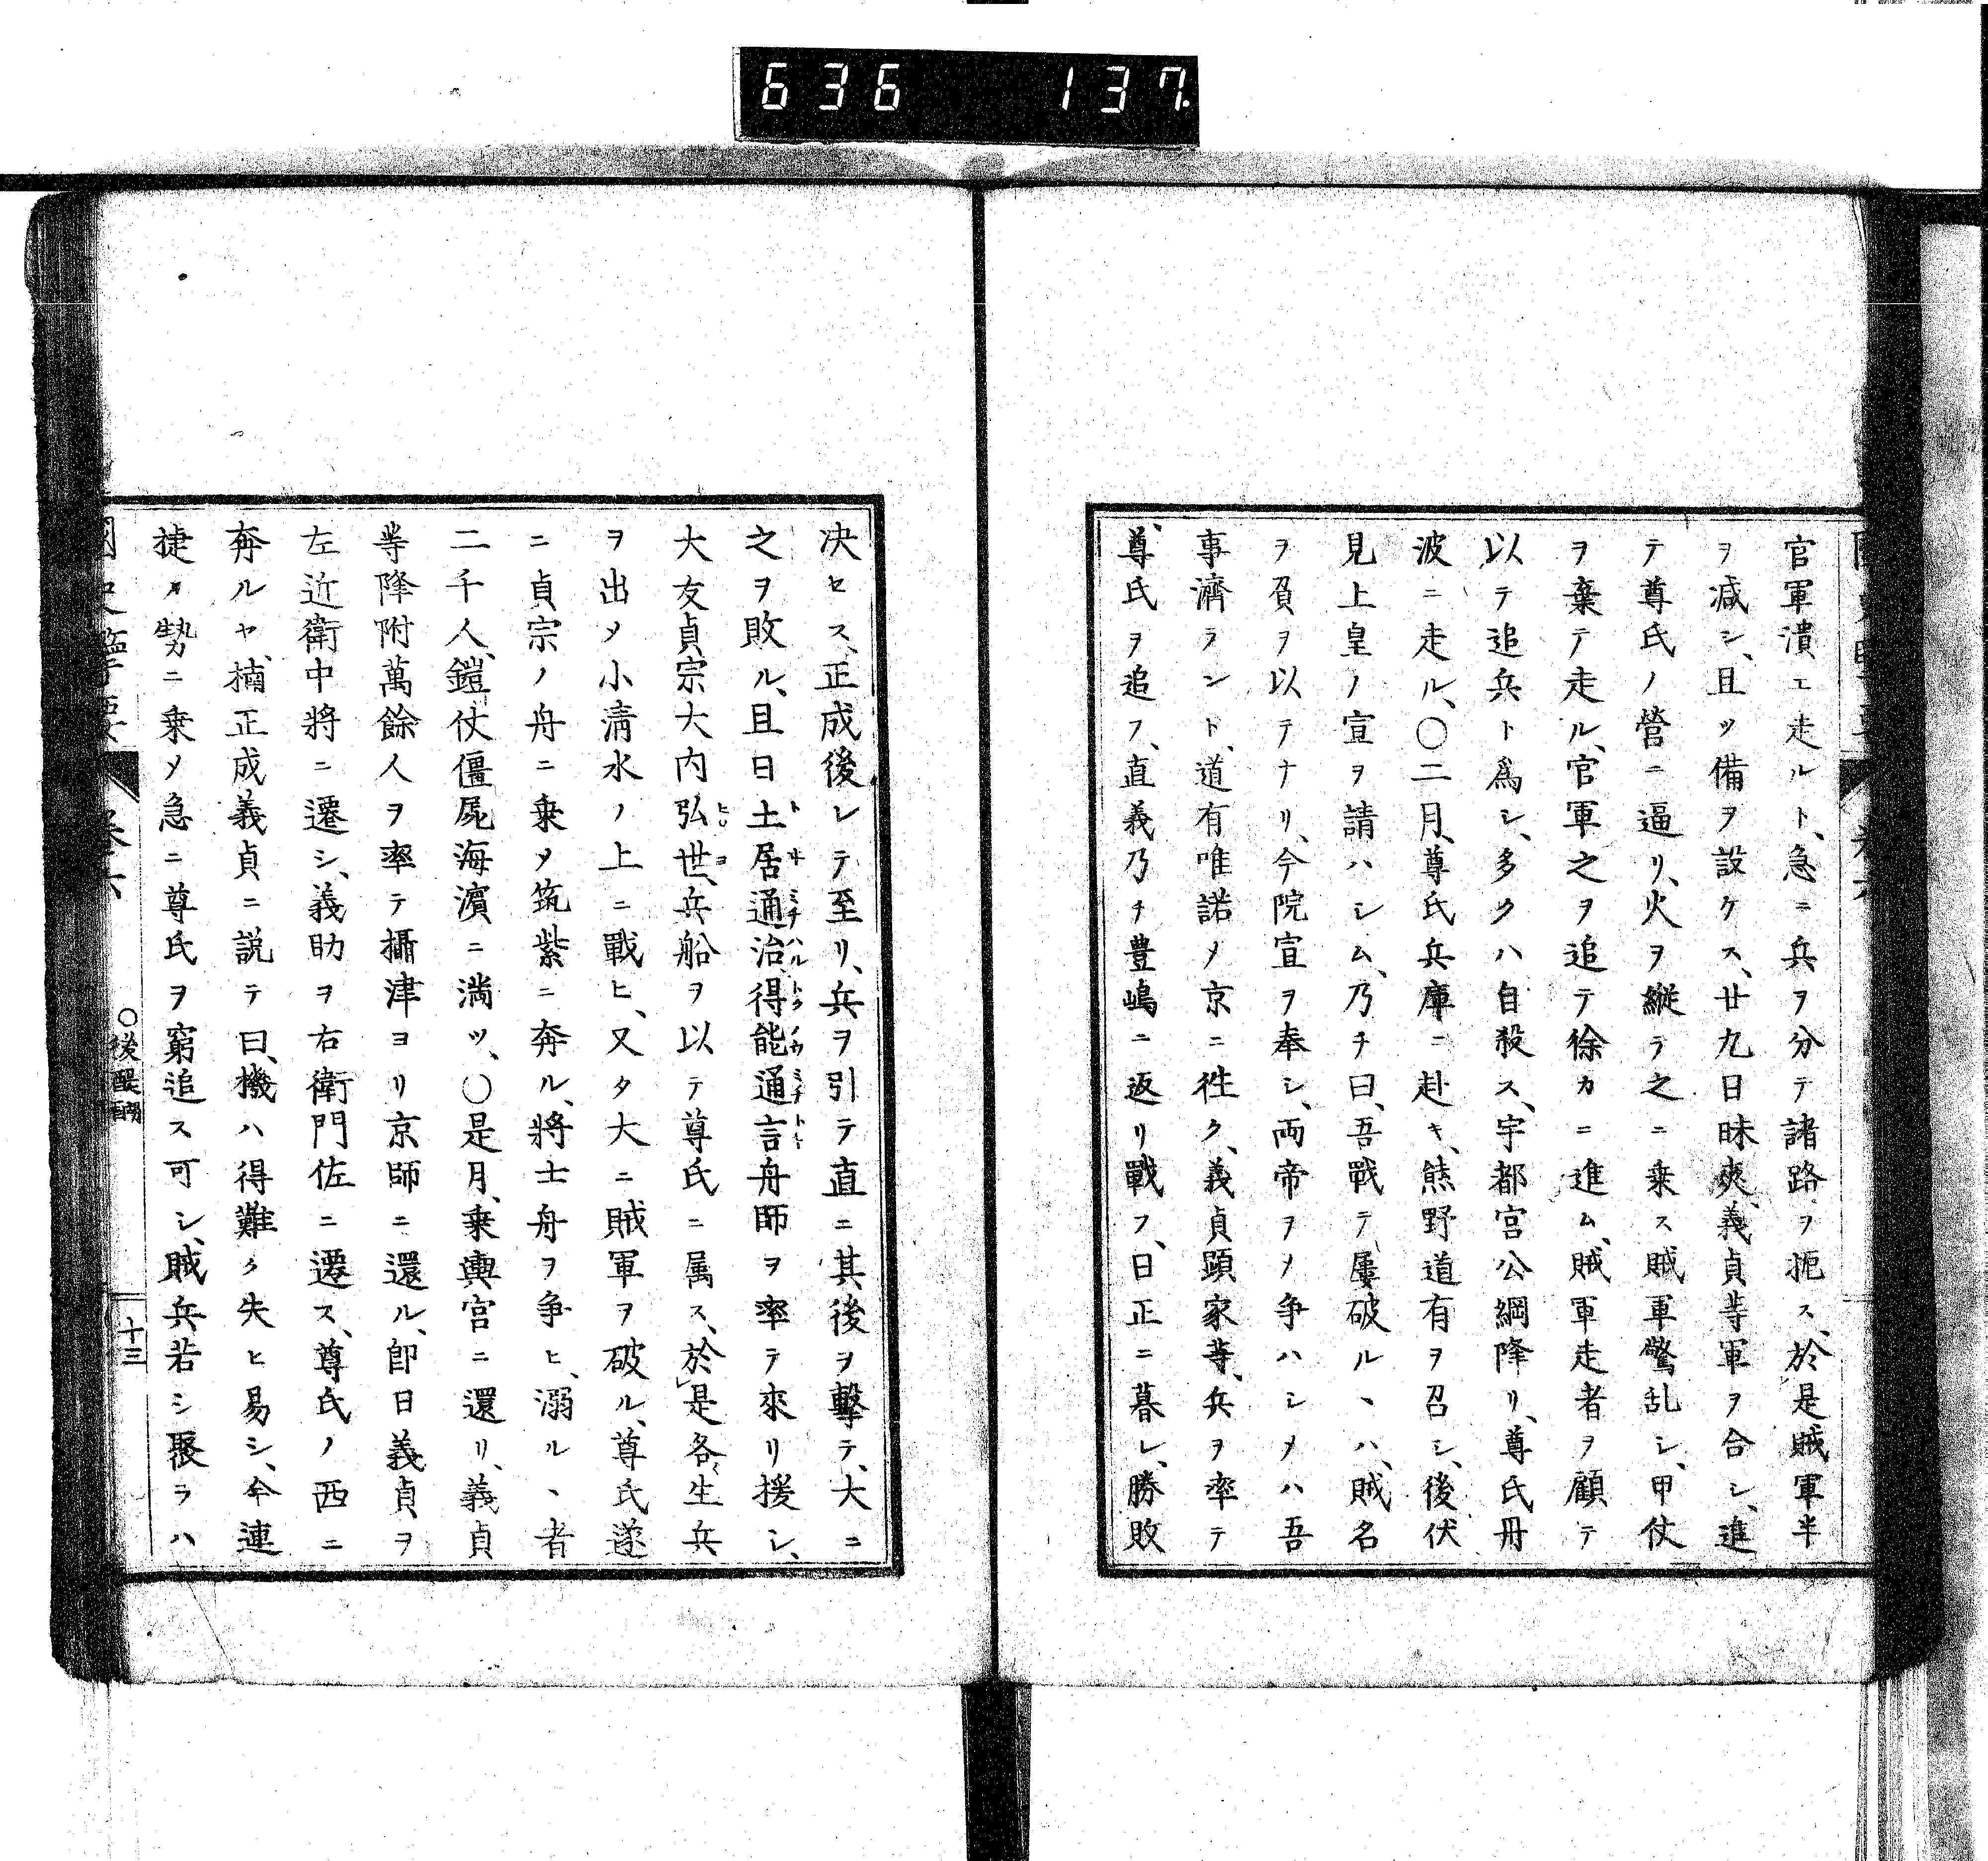 636 137
官軍潰エ走ルト、急ニ兵ヲ分テ諸路ヲ扼ス、於是賊軍半
ヲ減シ、且ツ備ヲ設ケス、廿九日昧爽、義貞等軍ヲ合シ、進
テ尊氏ノ營ニ逼リ、火ヲ縱テ之ニ乗ス賊軍驚乱シ、甲仗
ヲ棄テ走ル、官軍之ヲ追テ徐カニ進ム、賊軍走者ヲ顧テ
以テ追兵ト爲シ、多クハ自殺ス、宇都宮公綱降リ、尊氏丹
波ニ走ル、〇二月、尊氏兵庫ニ赴キ、熊野道有ヲ召シ、後伏
見上皇ノ宣ヲ請ハシム、乃チ曰、吾戰テ屢破ルヽハ、賊名
ヲ負ヲ以テナリ、今院宣ヲ奉シ、両帝ヲメ争ハシメハ吾
事濟ラント、道有唯諾メ京ニ徃ク、義貞顕家等、兵ヲ率テ
尊氏ヲ追フ、直義乃チ豊嶋ニ返リ戰フ、日正ニ暮レ、勝敗
决セス、正成後レテ至リ、兵ヲ引テ直ニ其後ヲ擊テ、大ニ
之ヲ敗ル、且日土居通治得能通言舟師ヲ率テ來リ援シ、
大友貞宗大内弘世、兵船ヲ以テ尊氏ニ属ス、於是各生兵
ヲ出メ小清水ノ上ニ戰ヒ、又タ大ニ賊軍ヲ破ル、尊氏遂
ニ貞宗ノ舟ニ乗メ筑紫ニ奔ル、將士舟ヲ争ヒ、溺ルヽ者
二千人、鎧仗僵屍海濱ニ満ツ、〇是月、乗輿宮ニ還リ、義貞
等降附萬餘人ヲ率テ攝津ヨリ京師ニ還ル、卽日義貞ヲ
左近衛中將ニ遷シ、義助ヲ右衛門佐ニ遷ス、尊氏ノ西ニ
奔ルヤ、楠正成義貞ニ説テ曰、機ハ得難ク失ヒ易シ、今連
捷ノ勢ニ乗メ急ニ尊氏ヲ窮追ス可シ、賊兵若シ聚ラハ
〇後醍醐
十三